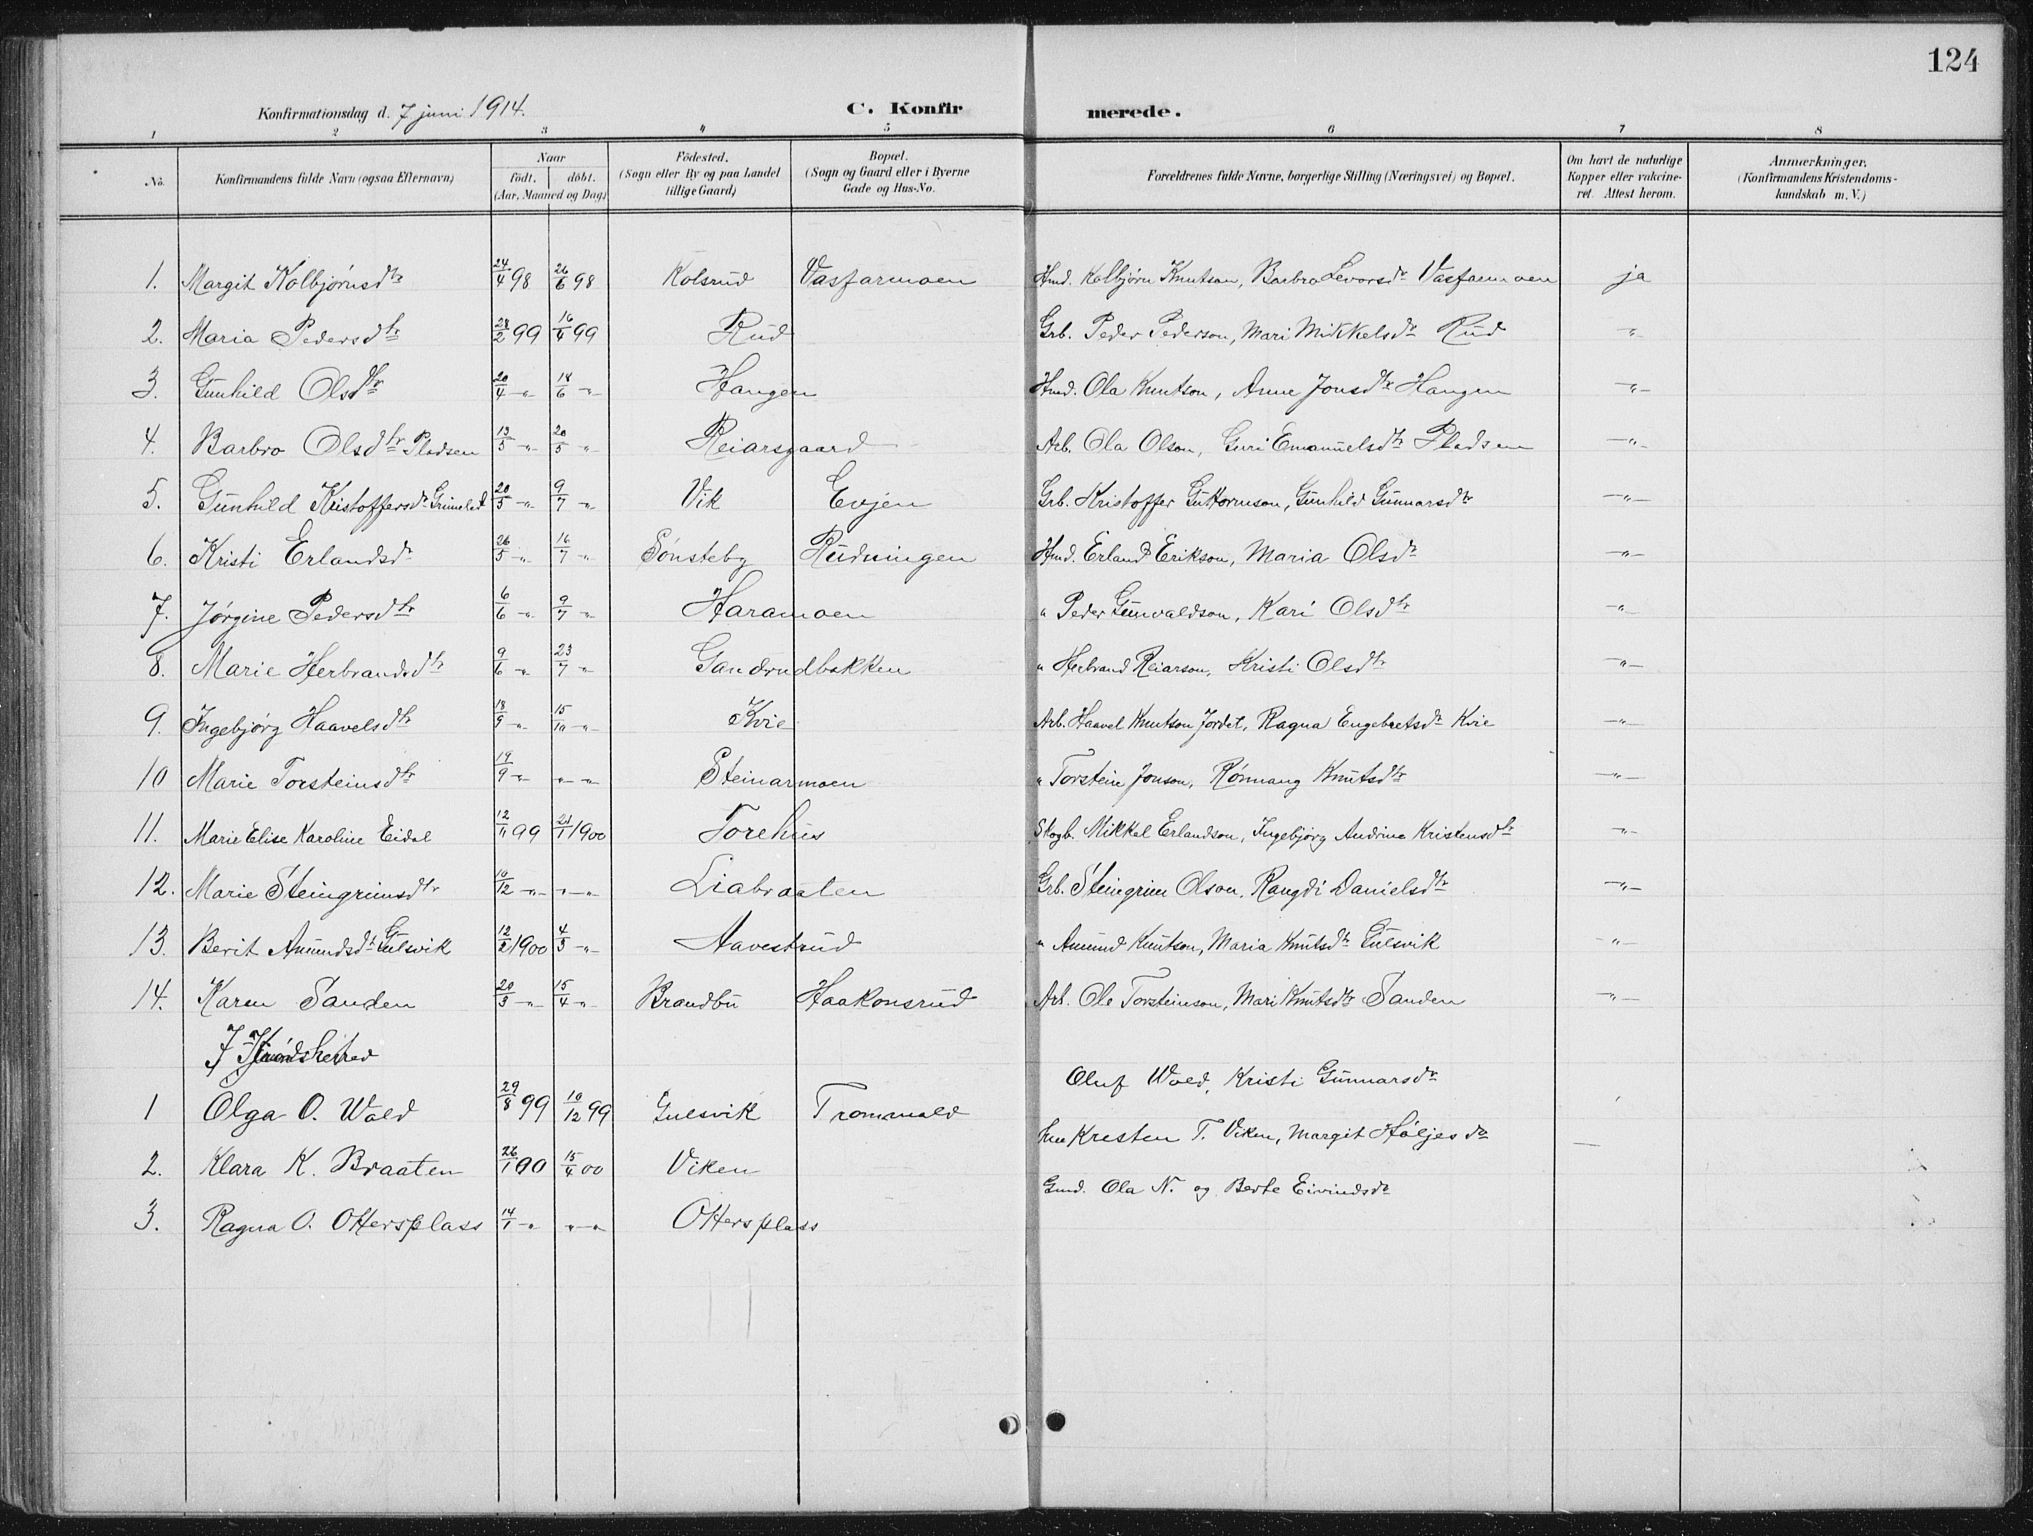 124
Konfirmationsdag d. 7 juni 1914. C. Konfirmerede.
1 2 3 4 5 6 7 8
No. Konfirmandens fulde Navn (ogsaa Efternavn) Naar födt. döbt. (Aar, Maaned og Dag) Födested. (Sogn eller By og paa Landet tillige Gaard) Bopæl. (Sogn og Gaard eller i Byerne Gade og Hus-No. Forældrenes fulde Navne, borgerlige Stilling (Næringsvei) og Bopæl. Om havt de naturlige Kopper eller vakcineret. Attest herom. Anmærkninger. (Konfirmandens Kristendomskundskab m. V.)
1. Margit Kolbjørnsdtr 24/4 98 26/6 98 Kolsrud Vasfarmoen Hmd. Kolbjørn Knutson, Barbro Levorsdr Vasfarmoen ja
2. Maria Pedersdtr 28/2 99 16/4 99 Rud Grb. Peder Pederson, Mari Mikkelsdr Rud -"-
3. Gunhild Olsdtr 20/4 -"- 18/6 -"- Haugen Hmd. Ola Knutson, Anne Jonsdtr Haugen -"-
4. Barbro Olsdtr Pladsen 13/5 -"- 20/5 -"- Reiarsgaard Arb. Ola Olson, Guri Emanuelsdtr Pladsen -"-
5. Gunhild Kristoffersdr Grimeled 20/5 -"- 9/7 -"- Vik Evjen Grb. Kristoffer Guttormson, Gunhild Gunnarsdtr -"-
6. Kristi Erlandsdr 26/5 -"- 16/7 -"- Sønsteby Rudningen Hmd. Erland Erikson, Maria Olsdr -"-
7. Jørgine Pedersdtr 6/6 -"- 9/7 -"- Haramoen " Peder Gunvaldson, Kari Olsdtr -"-
8. Marie Herbrandsdtr 9/6 -"- 23/7 -"- Gandrudbakken " Herbrand Reiarson, Kristi Olsdtr -"-
9. Ingebjørg Haavelsdtr 18/9 -"- 15/10 -"- Kvie Arb. Haavel Knutson Jordet, Ragna Engebretsdr Kvie -"-
10 Marie Torsteinsdtr 19/9 -"- -"- -"- Steinarmoen " Torstein Jonson, Rønnaug Knutsdtr -"-
11. Marie Elise Karoline Eidal 12/11 99 21/1 1900 Torehus Skogb. Mikkel Erlandson, Ingebjørg Andrine Kristensdtr -"-
12. Marie Steingrimsdtr 10/12 -"- -"- Liabraaten Grb. Steingrim Olson, Rangdi Danielsdtr -"-
13. Berit Amundsdt Gulsvik 12/2 1900 4/3 -"- Aavestrud " Amund Knutson, Maria Knutsdtr Gulsvik -"-
14. Karen Sanden 20/3 -"- 15/4 -"- Brandbu Haakonsrud Arb. Ole Torsteinson, Mari Knutsdtr Sanden -"-
I
1 Olga O. Wold 29/8 99 10/12 99 Gulsvik Trommald Oluf Wold, Kristi Gunnarsdr
2. Klara K. Braaten 26/1 90 15/4 00 Viken Kristen T. Viken, Margit Høljesdr
3. Ragna O. Ottersplass 14/1 -"- -"- Ottersplass Gmd. Ola N. og Berte Eivindsdr